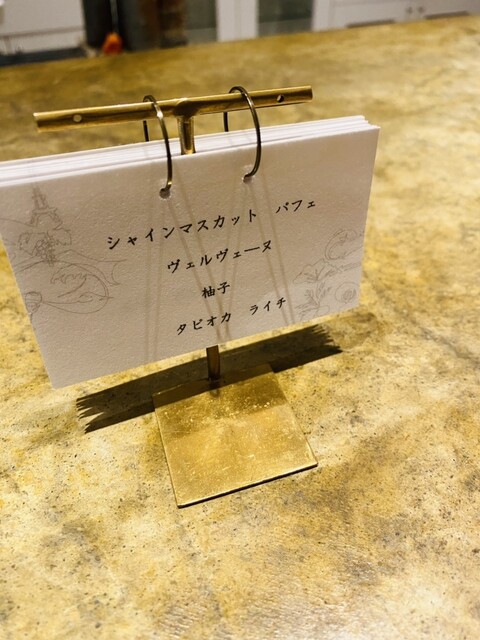 シャインマスカット　パフェ
ヴェルヴェーヌ
柚子
タピオカ　ライチ